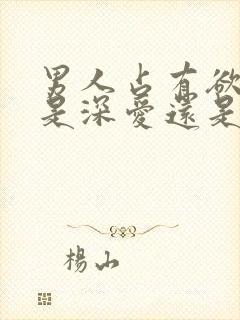 男人占有欲
是深愛還是
楊山